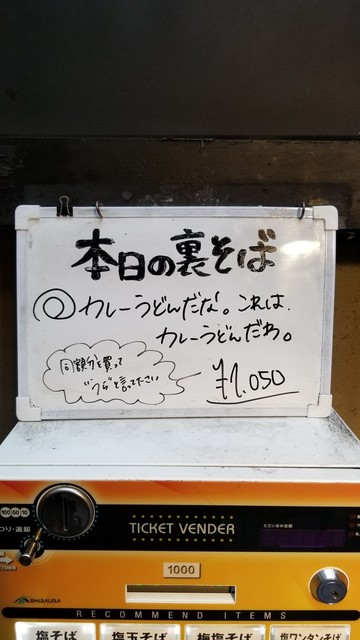 本日の裏そば
◎カレーうどんだな。これは、
カレーうどんだわ。
同額分を買って
¥1.050
100 50 10
TICKET VENDER
1000
SHIBAURA
RECOMMEND ITEMS
塩そば
塩玉そば
梅塩そば
塩ワンタンそば